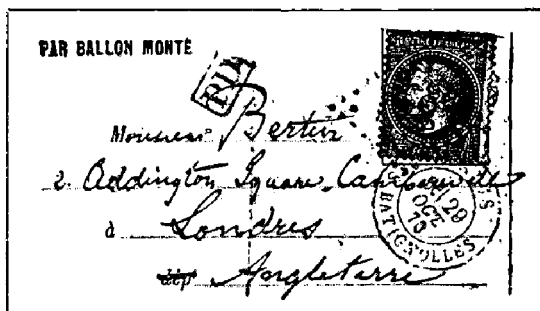 PAR BALLON MONTÉ
PD
Monsieur Bertin
2 Addington Square, Camberwell
à Londres
dép Angleterre
28
OCT.
70
BATIGNOLLES